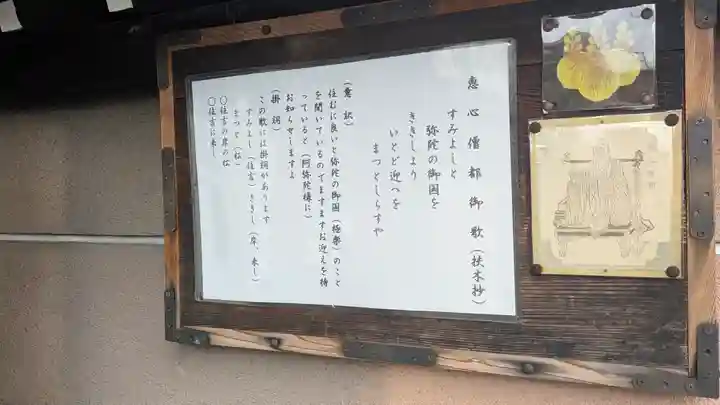 恵心僧都御歌（扶木抄）
すみよしと
弥陀の御国を
ききしより
いとど迎へを
まつとしらずや
（意訳）
住むに良いと弥陀の御国（極楽）のこと
を聞いているのでますますお迎えを待
っていると（阿弥陀様に）
お知らせしますよ
（掛詞）
この歌には掛詞があります
すみよし（住吉）ききし（岸、来し）
まつと（松）
〇住吉の岸の松
〇住吉に来し